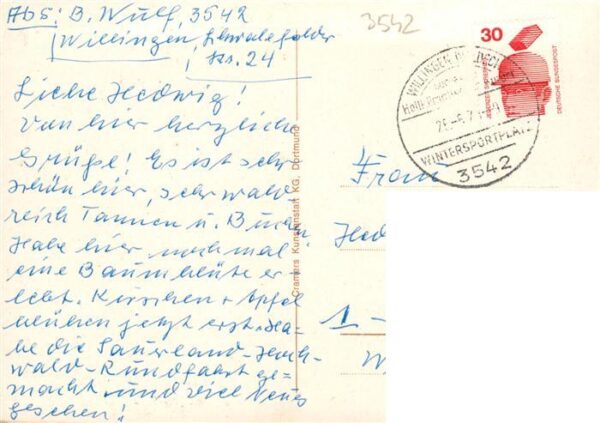 Abs: B. Wulf, 3542
Willingen, Schwalefelder
Str. 24
3542
Liebe Hedwig!
Von hier herzliche
Grüße! Es ist sehr
schön hier, sehr wald
reich Tannen u. Buchen
Habe hier noch mal
eine Baumblüte er-
lebt. Kirschen + Äpfel
blühen jetzt erst. Ha-
be die Sauerland-Hoch-
wald-Rundfahrt ge-
macht und viel Neues
gesehen!
Cramers Kunstanstalt KG, Dortmund
30
DEUTSCHE BUNDESPOST
WILLINGEN
WINTERSPORTPLATZ
3542
Frau
Hed
1-
W